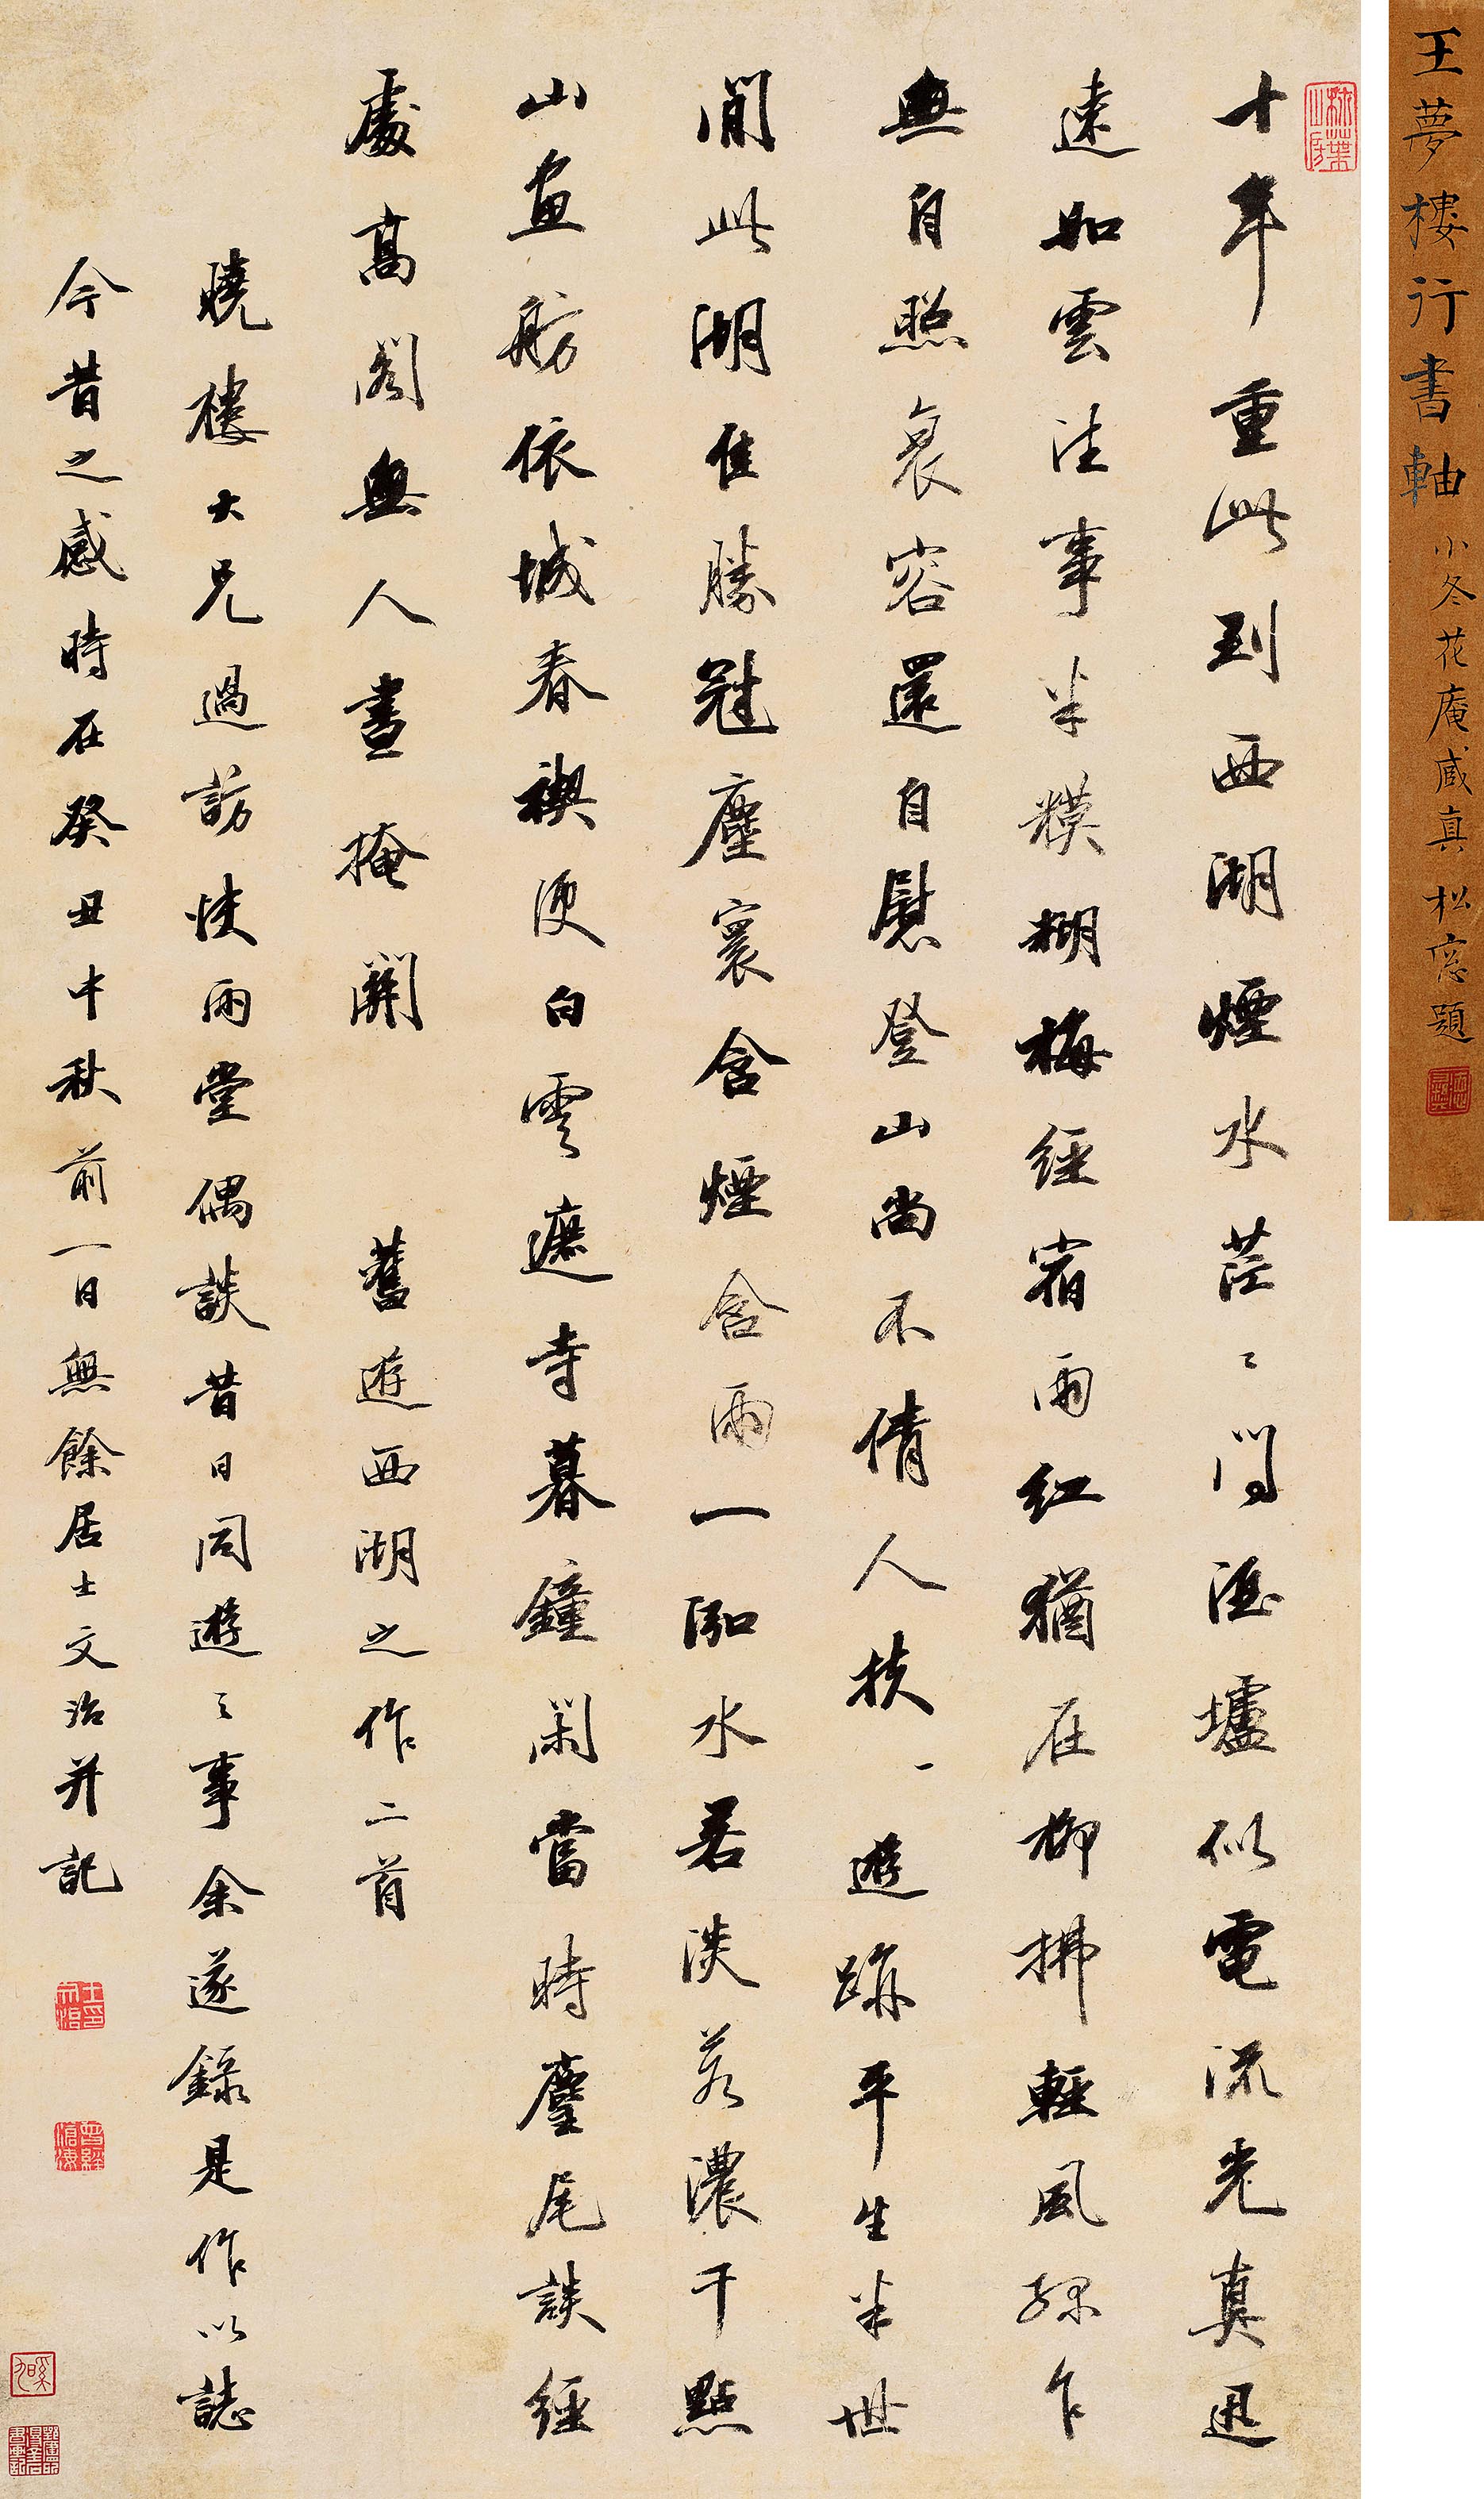 王夢樓行書軸 小冬花庵藏真 松窗題
柿葉山房
十年重此到西湖煙水茫〻問酒壚似電流光真迅
速如雲往事半糢糊梅經宿雨紅猶在柳拂輕風綠乍
無自照衰容還自慰登山尚不倩人扶 遊跡平生半世
間此湖佳勝冠塵寰含煙含雨一泓水若淡若濃千點
山畫舫依城春禊便白雲遮寺暮鐘閑當時麈尾談經
處高閣無人晝掩關 舊遊西湖之作二首
曉樓大兄過訪快雨堂偶談昔日同遊之事余遂錄是作以誌
今昔之感時在癸丑中秋前一日無餘居士文治并記
王文治印
曾經滄海